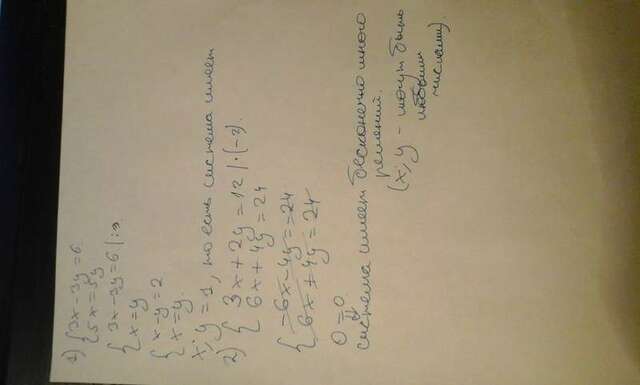 1) { 3x - 3y = 6
5x = 5y
{ 3x - 3y = 6 | :3
x = y
{ x - y = 2
x = y.
x; y = 1, то есть система имеет
2) { 3x + 2y = 12 | · (-2).
6x + 4y = 24
{ -6x - 4y = -24
6x + 4y = 24
0 = 0
⇓
система имеет бесконечно много
решений.
(x; y - могут быть
любыми
числами)